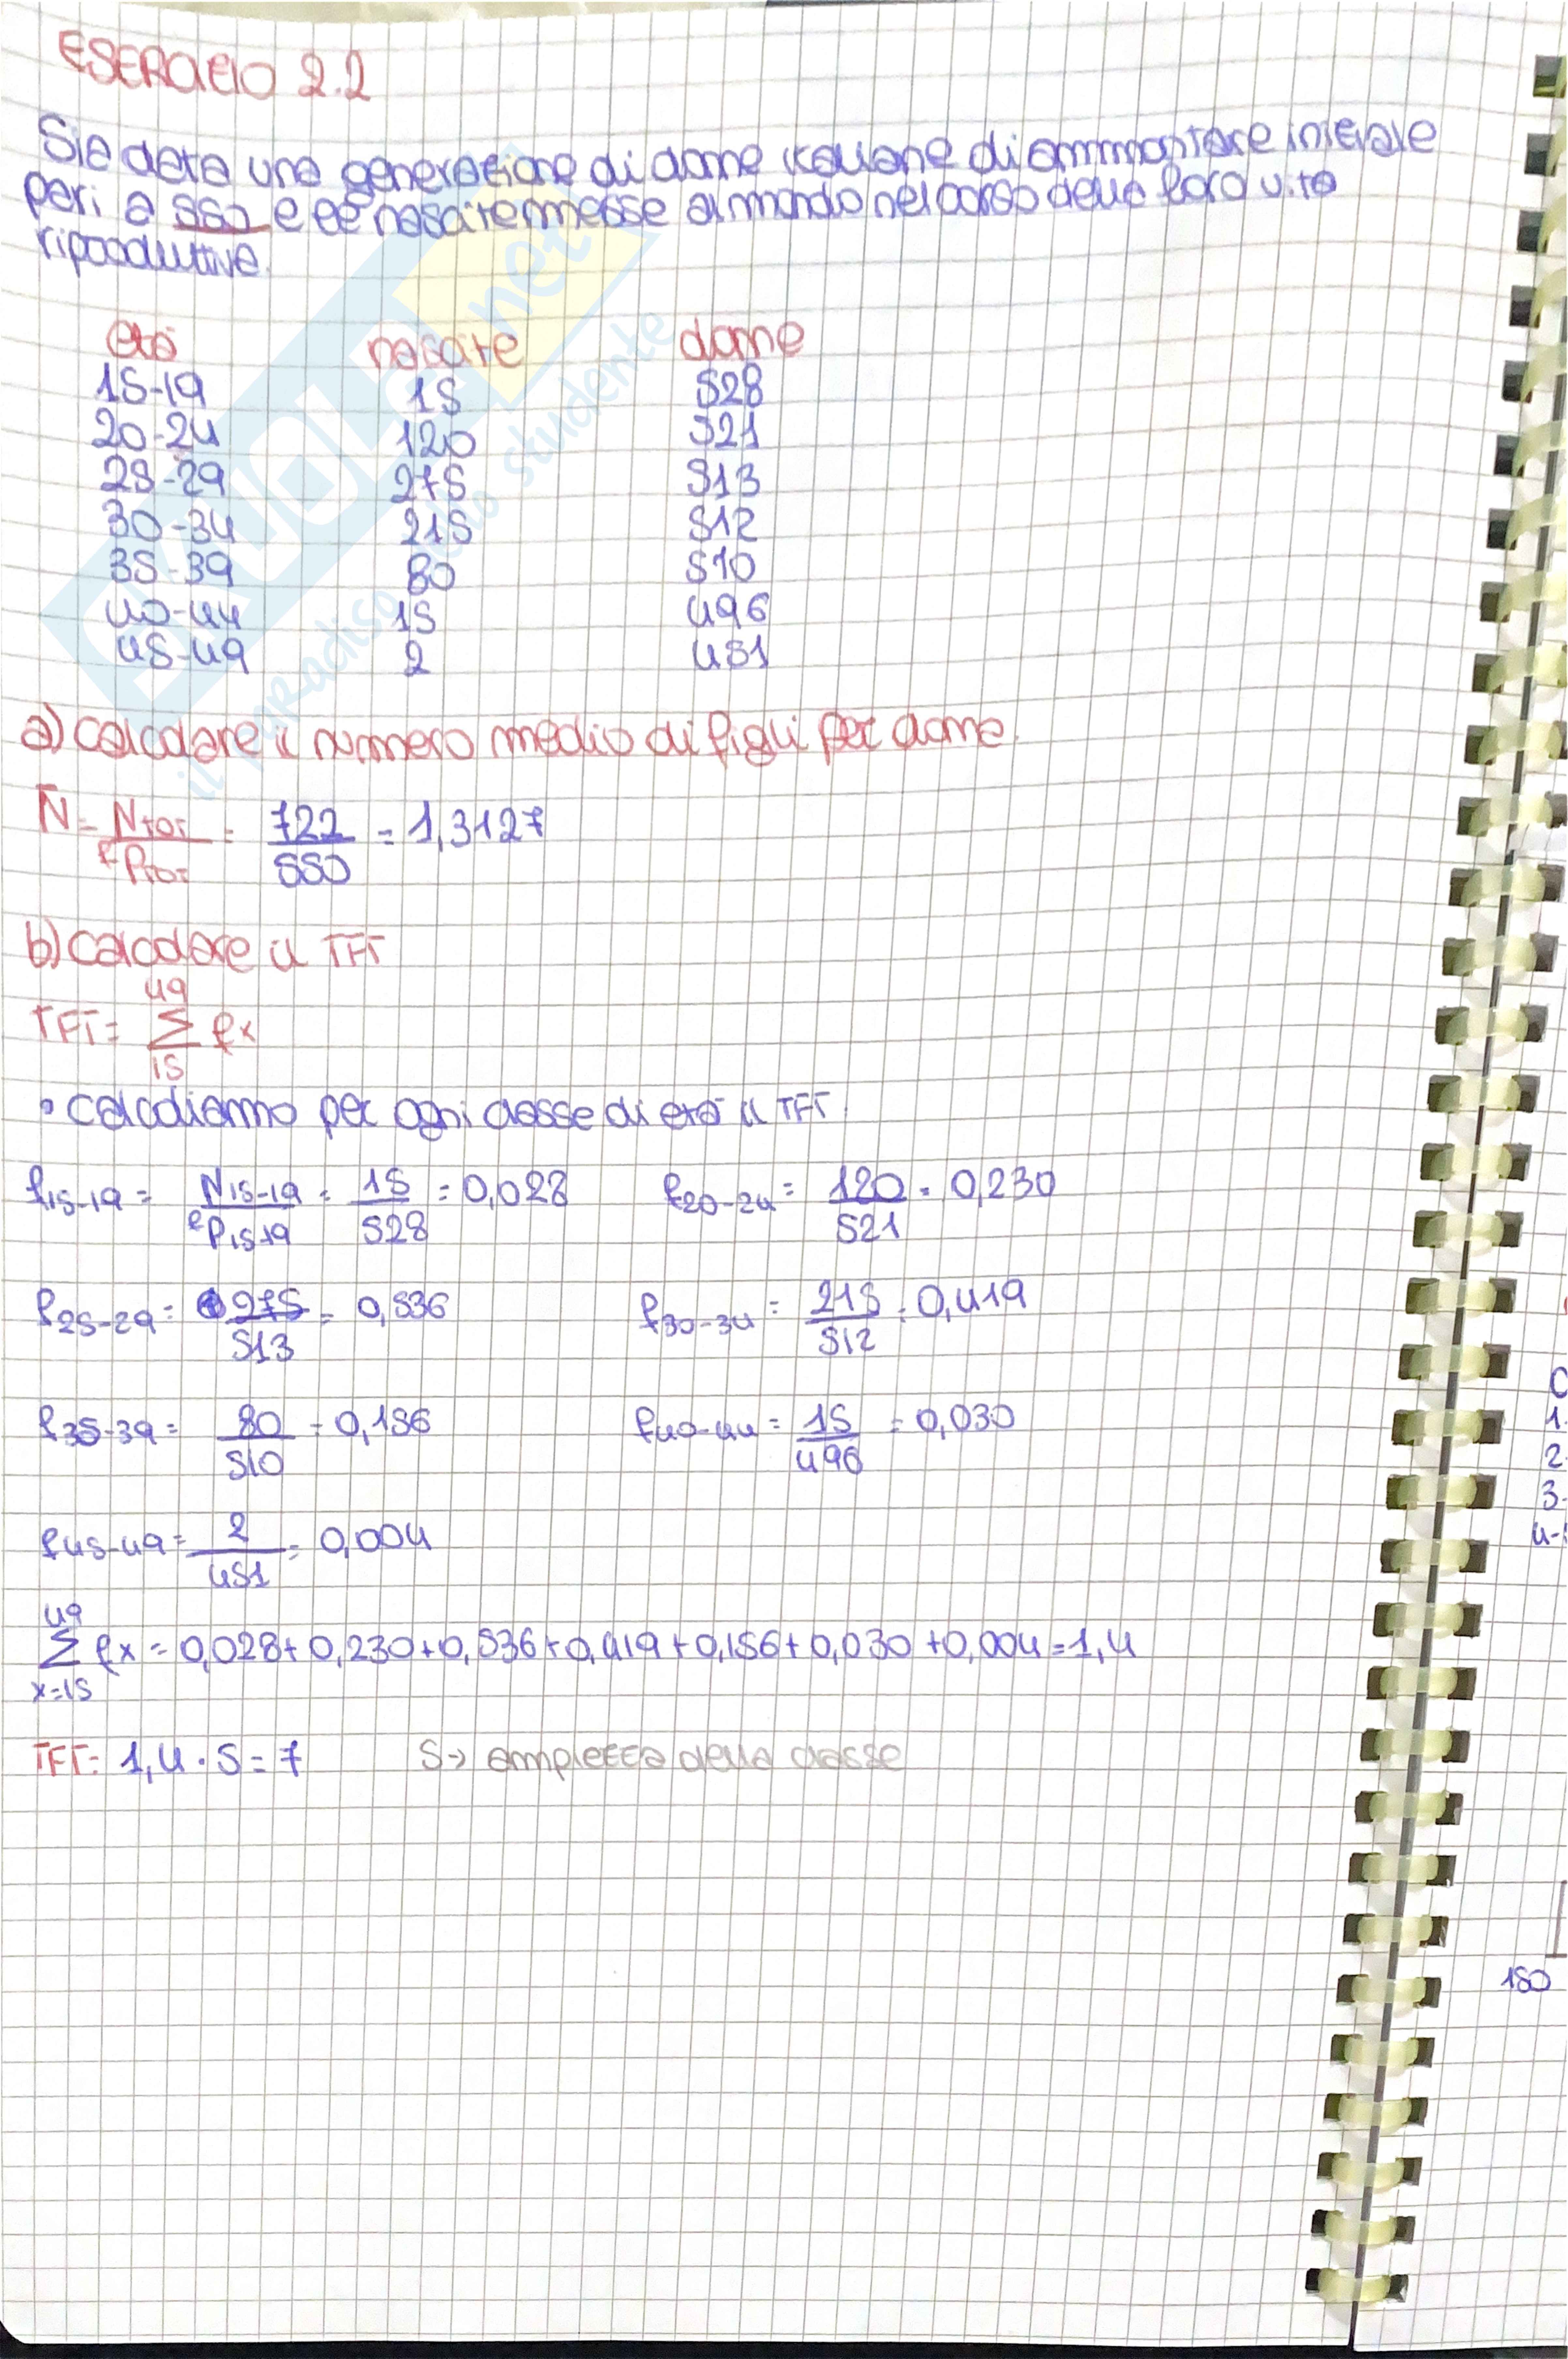 ESERCIZIO 2.2
Sia data una generazione di donne italiane di ammontare iniziale
pari a 550 e le nascite messe al mondo nel corso della loro vita
riproduttiva.
età nascite donne
15-19 15 528
20-24 120 521
25-29 275 513
30-34 215 512
35-39 80 510
40-44 15 496
45-49 2 451
a) calcolare il numero medio di figli per donna.
N̄ = Ntot / fPtot = 722 / 550 = 1,3127
b) calcolare il TFT
TFT = 49 Σ 15 fx
• calcoliamo per ogni classe di età il TFT.
f15-19 = N15-19 / fP15-19 = 15 / 528 = 0,028 f20-24 = 120 / 521 = 0,230
f25-29 = 275 / 513 = 0,536 f30-34 = 215 / 512 = 0,419
f35-39 = 80 / 510 = 0,156 f40-44 = 15 / 496 = 0,030
f45-49 = 2 / 451 = 0,004
49 Σ x=15 fx = 0,028+0,230+0,536+0,419+0,156+0,030+0,004=1,4
TFT: 1,4 · 5 = 7 5 → ampiezza della classe
1-
2-
3-
4-
150
SKUOLA.net
il paradiso dello studente